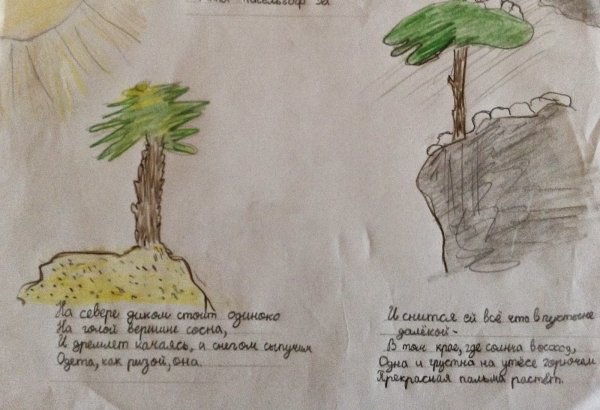 На севере диком стоит одиноко
На голой вершине сосна,
И дремлет качаясь, и снегом сыпучим
Одета, как ризой, она.
И снится ей всё что в пустыне
далёкой -
В том крае, где солнца восход,
Одна и грустна на утёсе горючем
Прекрасная пальма растёт.